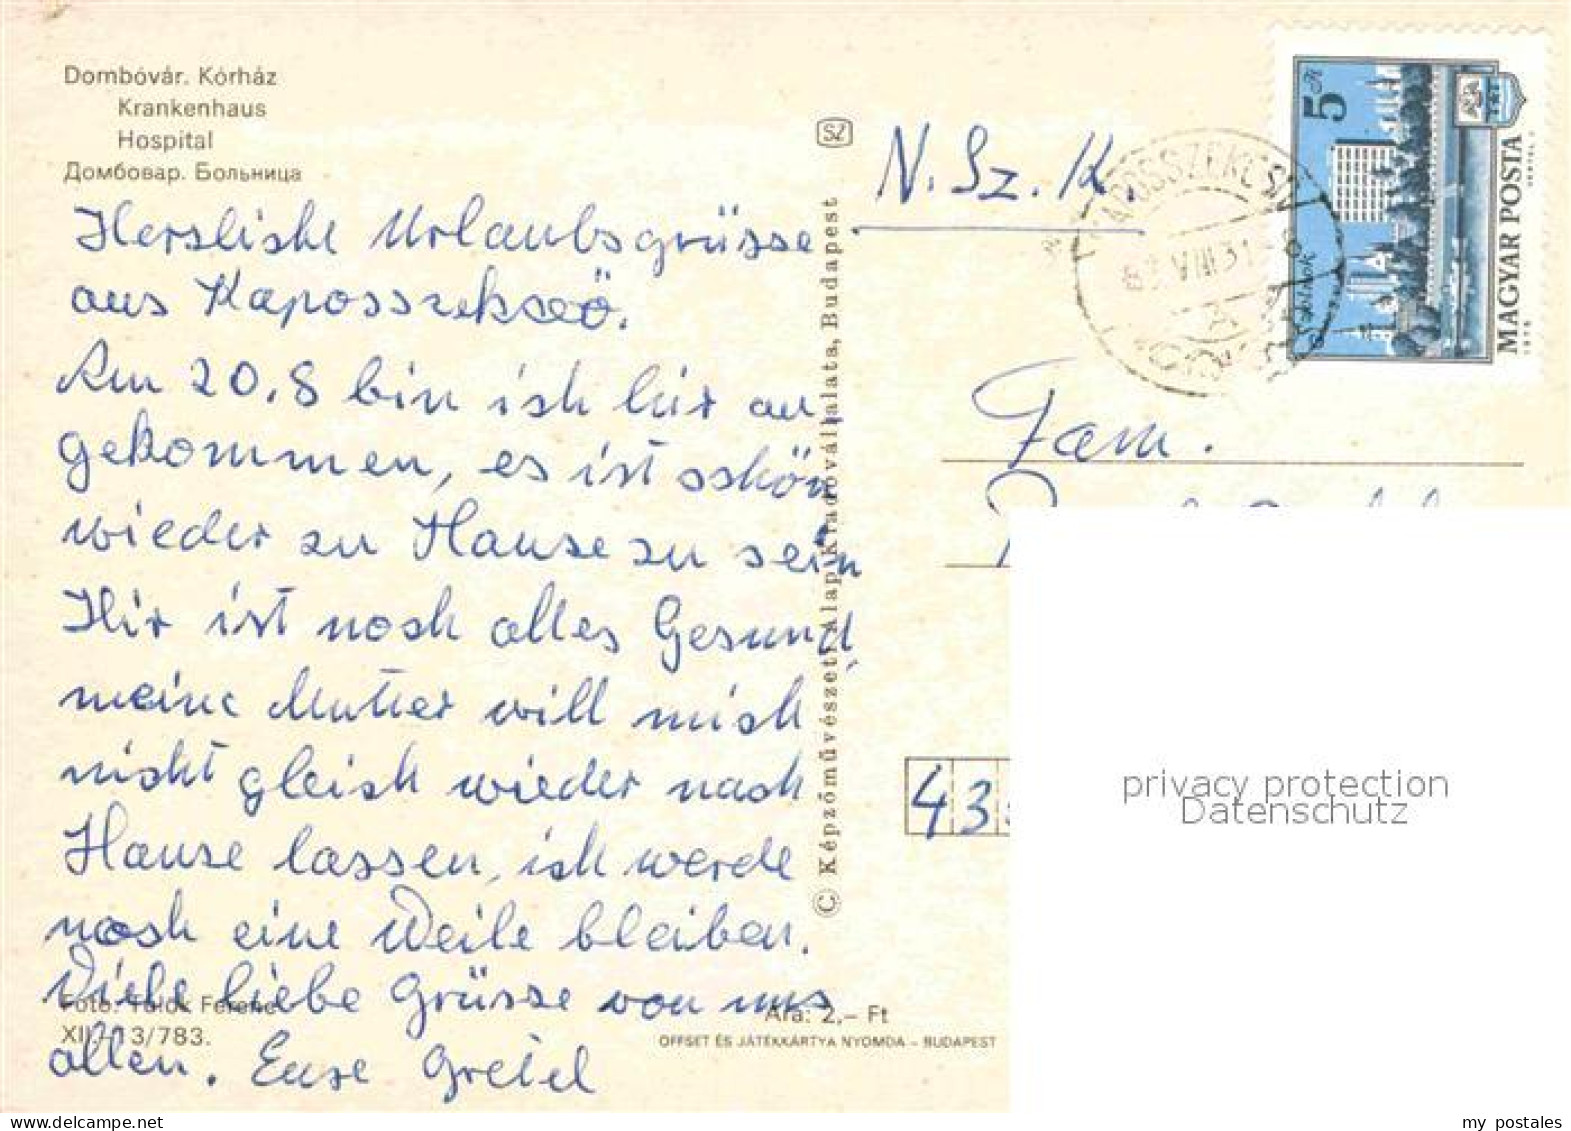 Dombóvár. Kórház
Krankenhaus
Hospital
Домбовар. Больница
Hersliche Urlaubsgrüsse
aus Kaposszekcsö.
Am 20.8 bin ich hir an
gekommen, es ist schön
wieder zu Hause zu sein
Hir ist noch alles Gesund,
meine Mutter will mich
nicht gleich wieder nach
Hause lassen, ich werde
noch eine Weile bleiben.
Viele liebe Grüsse von uns
allen. Eure Gretel
Foto: Tulok Ferenc
XII-13/783.
Ára: 2,– Ft
OFFSET ÉS JÁTÉKKÁRTYA NYOMDA – BUDAPEST
© Képzőművészeti Alap Kiadóvállalata, Budapest
SZ
N. Sz. K.
KAPOSSZEKCSŐ
VIII 31
5 Ft
MAGYAR POSTA
1978
Fam.
43
privacy protection
Datenschutz
my postales